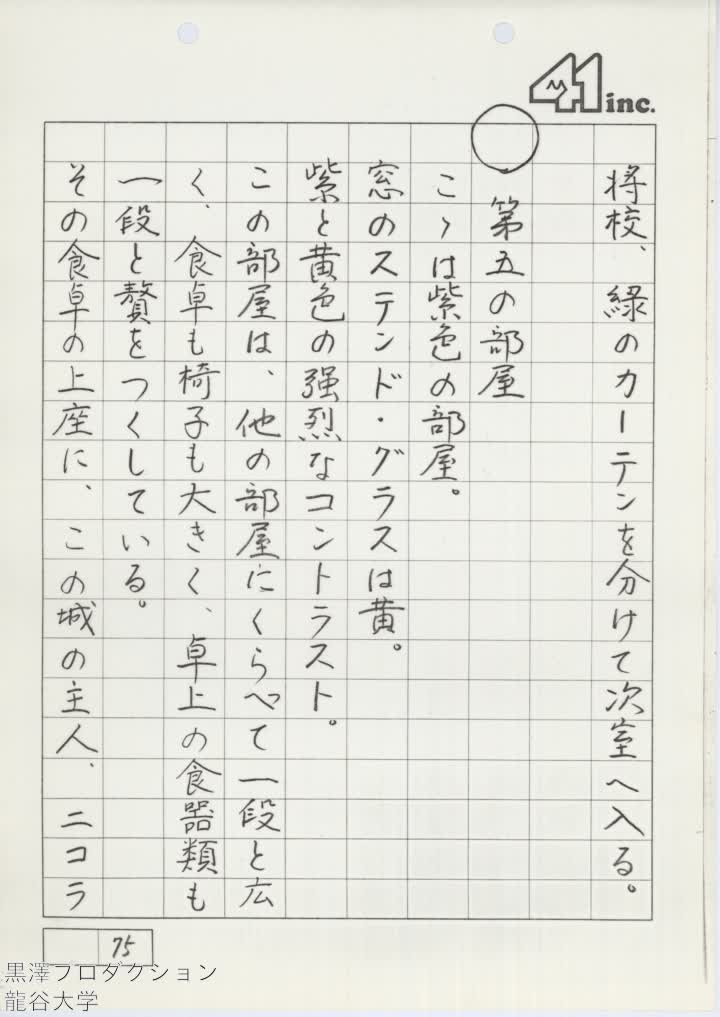 41 inc.
将校、緑のカーテンを分けて次室へ入る。
○第五の部屋
こゝは紫色の部屋。
窓のステンド・グラスは黄。
紫と黄色の強烈なコントラスト。
この部屋は、他の部屋にくらべて一段と広
く、食卓も椅子も大きく、卓上の食器類も
一段と贅をつくしている。
その食卓の上座に、この城の主人、ニコラ
75
黒澤プロダクション
龍谷大学